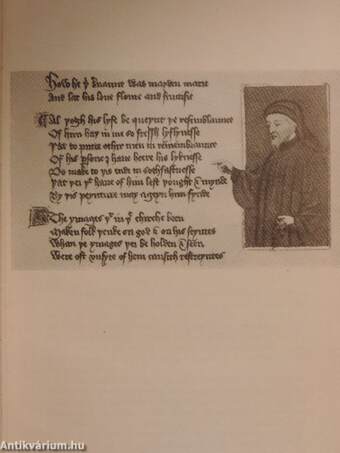 How he þͤ seruaunt was mayden marie
And lat his loue floure and fructifie
Al þogh his lyfe be queynt þe resemblaunce
Of him haþ in me so fressh lyflynesse
Þat to putte othir men in remembraunce
Of his persone I haue heere his lyknesse
Do make to þis ende in sothfastnesse
Þat þei þͭ haue of him lest þought & mynde
By þis peynture may ageyn him fynde
The ymages þͭ in þͤ chirche been
Maken folk þenke on god & on his seyntes
Whan þe ymages þei be holden & seen
Were oft vnsyte of hem causith restreyntes
Antikvárium.hu